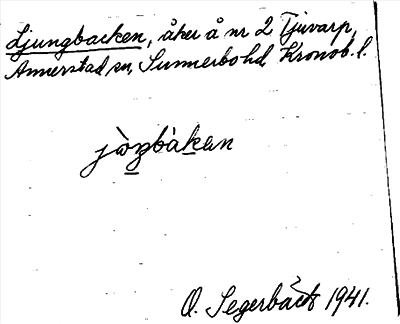 Ljungbacken, åker å nr 2 Tjuvarp,
Annerstad sn, Sunnerbo hd Kronob. l.
jòŋbàkan
O. Segerbäck 1941.